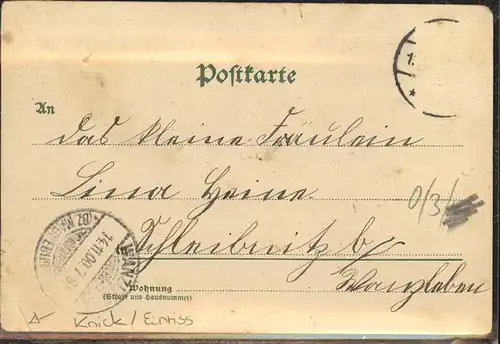 Postkarte
An
das kleine Fräulein
Lina Heine
Schleibnitz b/
Wanzleben
Wohnung
(Straße und Hausnummer)
14.11.00.7-8
0/3/
Knick/Einriss